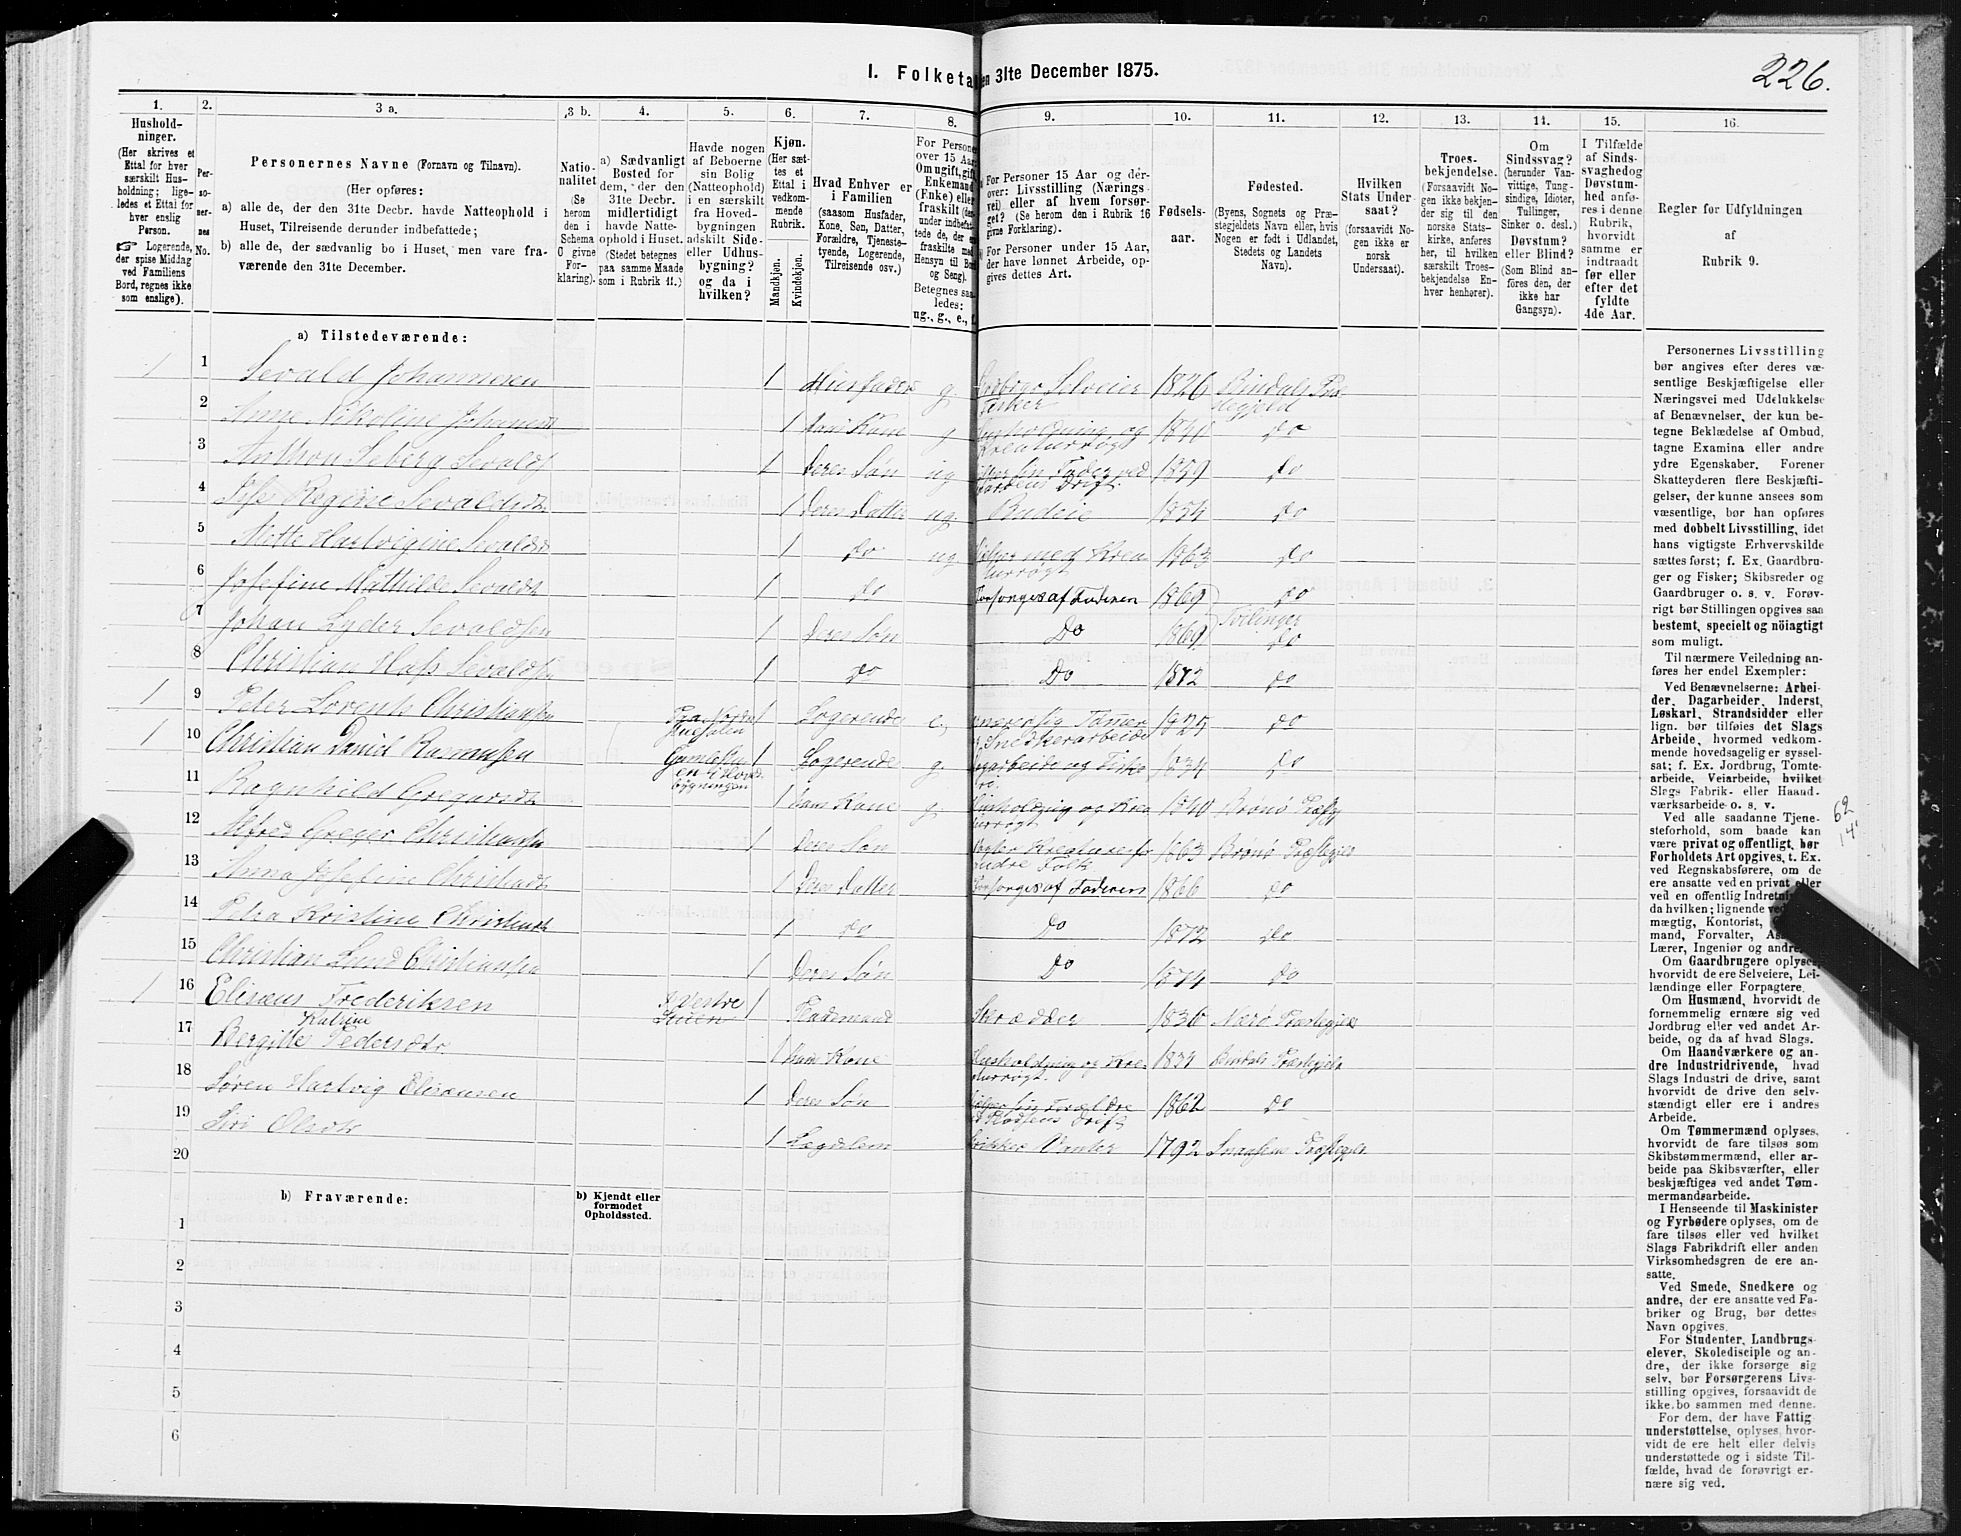 226.
I. Folketa en 31te December 1875.
1. 2. 3 a. 3 b. 4. 5. 6. 7. 8. 9. 10. 11. 12. 13. 14. 15. 16.
Hushold-
ninger.
(Her skrives et
Ettal for hver
særskilt Hus-
holdning; lige-
ledes et Ettal for
hver enslig
Person.
☞ Logerende,
der spise Middag
ved Familiens
Bord, regnes ikke
som enslige).
Per-
so-
ner-
nes
No.
Personernes Navne (Fornavn og Tilnavn).
(Her opføres:
a) alle de, der den 31te Decbr. havde Natteophold i
Huset, Tilreisende derunder indbefattede;
b) alle de, der sædvanlig bo i Huset, men vare fra-
værende den 31te December.
Natio-
nalitet
(Se
herom
den i
Schema
6 givne
For-
klaring).
a) Sædvanligt
Bosted for
dem, der den
31te Decbr.
midlertidigt
havde Natte-
ophold i Huset.
(Stedet betegnes
paa samme Maade
som i Rubrik 11.)
Havde nogen
af Beboerne
sin Bolig
(Natteophold)
i en særskilt
fra Hoved-
bygningen
adskilt Side-
eller Udhus-
bygning?
og da i
hvilken?
Kjøn.
(Her sæt-
tes et
Ettal i
vedkom-
mende
Rubrik.
Mandkjøn.
Kvindekjøn.
Hvad Enhver er
i Familien
(saasom Husfader,
Kone, Søn, Datter,
Forældre, Tjeneste-
tyende, Logerende,
Tilreisende osv.)
For Persone
over 15 Aar
Om ugift, gift
Enkemand
(Enke) eller
fraskilt
Betegnes saa
ledes:
ug., g., e.,
For Personer 15 Aar og der-
over: Livsstilling (Nærings
vei) eller af hvem forsør-
get? (Se herom den i Rubrik 16
givne Forklaring).
For Personer under 15 Aar,
der have lønnet Arbeide, op-
gives dettes Art.
Fødsels-
aar.
Fødested.
(Byens, Sognets og Præ-
stegjeldets Navn eller, hvis
Nogen er født i Udlandet,
Stedets og Landets
Navn).
Hvilken
Stats Under
saat?
(forsaavidt No-
gen ikke er
norsk
Undersaat).
Troes-
bekjendelse.
(Forsaavidt No-
gen ikke bekjen-
der sig til den
norske Stats-
kirke, anføres
her, til hvilken
særskilt Troes-
bekjendelse En-
hver henhører).
Om
Sindssvag?
(herunder Van-
vittige, Tung-
sindige, Idioter,
Tullinger,
Sinker o. desl.)
Døvstum?
eller Blind?
(Som Blind an-
føres den, der
ikke har
Gangsyn).
I Tilfælde
af Sinds-
svaghed og
Døvstum-
hed anfø-
res i denne
Rubrik,
hvorvidt
samme er
indtraadt
før eller
efter det
fyldte
4de Aar.
Regler for Udfyldningen
af
Rubrik 9.
a) Tilstedeværende:
1 1 Sevald Johannesen 1 Husfader g. Selveier 1826 Bindals
Fisker
2 Anne Nikoline 1 hans Kone g Husholdning og 1840 Do
Kreaturrøgt
3 Anthon Seberg 1 deres Søn ug Fader ved 1859 Do
Drift.
4 Regine Sevaldsdt. 1 deres Datter ug. Budeie 1854 Do
5 Mette Hartvigine 1 do ug. med Krea 1863 Do
turrøgt
6 Josefine Mathilde Sevaldsdt 1 do Forsørges af Faderen 1869 Do
Tvilinger
7 Johan Lyder Sevaldsen 1 deres Søn Do 1869 Do
8 Christian Sevaldsen 1 do Do 1872 Do
1 9 Peter Lorents Christiansen 1 Logerende e, 1825 do
Snedkerarbeide
1 10 Christian Daniel Rasmussen 1 Logerende g. og Fiske 1834 Do
bygningen
11 Ragnhild Gregersdt 1 hans Kone g. Husholdning og Krea 1840 Brønø
turrøgt
12 Alfred Greger Christiansen 1 deres Søn 1863 Brønø
andre Folk
13 Anna Josefine Christiansdt 1 deres Datter Forsørges af Faderen 1866 do
14 Petra Kristine Christiansdt 1 do Do 1872 Do
15 Christian Lund Christiansen 1 deres Søn Do 1874 Do
1 16 Elisæus Frederiksen Vestre 1 Skrædder 1830 Nærø
Stuen
17 Katrine
Bergitte Pedersdtr. 1 hans Kone Husholdning og Krea 1834 Bindals
turrøgt.
18 Søren Hartvig Elisæusen 1 deres Søn 1862 Do
Drift
19 Siri Olsdt 1 Lægdslem Strikker Vanter 1792
20
b) Fraværende:
b) Kjendt eller
formodet
Opholdssted.
1
2
3
4
5
6
Personernes Livsstilling
bør angives efter deres væ-
sentlige Beskjæftigelse eller
Næringsvei med Udelukkelse
af Benævnelser, der kun be-
tegne Beklædelse af Ombud,
tagne Examina eller andre
ydre Egenskaber. Forener
Skatteyderen flere Beskjæfti-
gelser, der kunne ansees som
væsentlige, bør han opføres
med dobbelt Livsstilling, idet
hans vigtigste Erhvervskilde
sættes først; f. Ex. Gaardbru-
ger og Fisker; Skibsreder og
Gaardbruger o. s. v. Forøv-
rigt bør Stillingen opgives saa
bestemt, specielt og nöiagtigt
som muligt.
Til nærmere Veiledning an-
føres her endel Exempler:
Ved Benævnelserne: Arbei-
der, Dagarbeider, Inderst,
Løskarl, Strandsidder eller
lign. bør tilføies det Slags
Arbeide, hvormed vedkom-
mende hovedsagelig er syssel-
sat; f. Ex. Jordbrug, Tomte-
arbeide, Veiarbeide, hvilket
Slags Fabrik- eller Haand-
værksarbeide o. s. v.
Ved alle saadanne Tjene-
steforhold, som baade kan
være privat og offentligt, bør
Forholdets Art opgives, t. Ex.
ved Regnskabsførere, om de
ere ansatte ved en privat eller
ved en offentlig
da hvilken; lignende ved
mægtig, Kontorist,
mand, Forvalter,
Lærer, Ingeniør og andre
Om Gaardbrugere oplyses,
hvorvidt de ere Selveiere, Lei-
lændinge eller Forpagtere.
Om Husmænd, hvorvidt de
fornemmelig ernære sig ved
Jordbrug eller ved andet Ar-
beide, og da af hvad Slags.
Om Haandværkere og an-
dre Industridrivende, hvad
Slags Industri de drive, samt
hvorvidt de drive den selv-
stændigt eller ere i andres
Arbeide.
Om Tømmermænd oplyses,
hvorvidt de fare tilsøs som
Skibstømmermænd, eller ar-
beide paa Skibsværfter, eller
beskjæftiges ved andet Tøm-
mermandsarbeide.
I Henseende til Maskinister
og Fyrbødere oplyses, om de
fare tilsøs eller ved hvilket
Slags Fabrikdrift eller anden
Virksomhedsgren de ere an-
satte.
Ved Smede, Snedkere og
andre, der ere ansatte ved Fa-
briker og Brug, bør dettes
Navn opgives.
For Studenter, Landbrugs-
elever, Skoledisciple og an-
dre, der ikke forsørge sig
selv, bør Forsørgerens Livs-
stilling opgives, forsaavidt de
ikke bo sammen med denne.
For dem, der have Fattig-
understøttelse, oplyses, hvor-
vidt de ere helt eller delvis
understøttede og i sidste Til-
fælde, hvad de forøvrigt er-
nære sig ved.
62
14